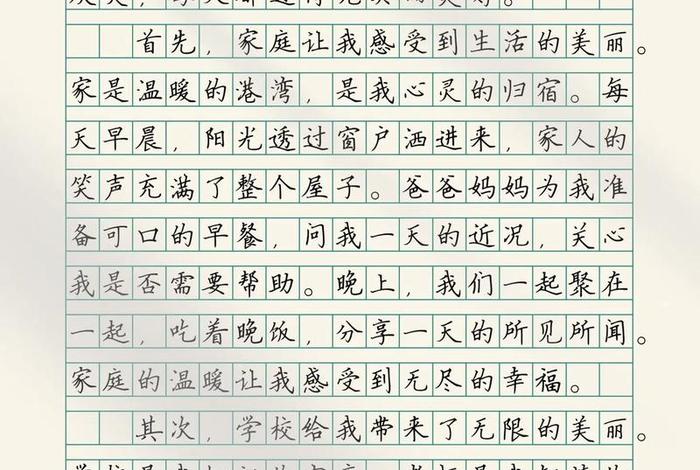 首先，家庭让我感受到生活的美丽。
家是温暖的港湾，是我心灵的归宿。每
天早晨，阳光透过窗户洒进来，家人的
笑声充满了整个屋子。爸爸妈妈为我准
备可口的早餐，问我一天的近况，关心
我是否需要帮助。晚上，我们一起聚在
一起，吃着晚饭，分享一天的所见所闻。
家庭的温暖让我感受到无尽的幸福。
其次，学校给我带来了无限的美丽。